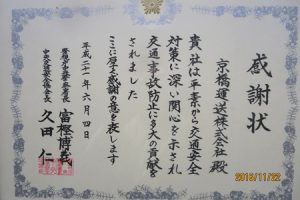 感謝状
京橋運送株式会社 殿
貴社は平素から交通安全
対策に深い関心を示され
交通事故防止に多大の貢献を
されました
ここに厚く感謝の意を表します
平成二十一年六月四日
富樫博義
久田 仁
2016/11/22